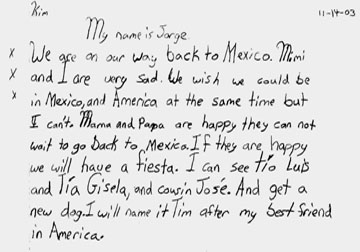 Kim 11-14-03
My name is Jorge
x We are on our way back to Mexico. Mimi
x and I are very sad. We wish we could be
x in Mexico, and America at the same time but
I can't. Mama and Papa are happy they can not
wait to go back to Mexico. If they are happy
we will have a fiesta. I can see tío Luis
and Tía Gisela, and cousin José. And get a
new dog. I will name it Tim after my best friend
in America.